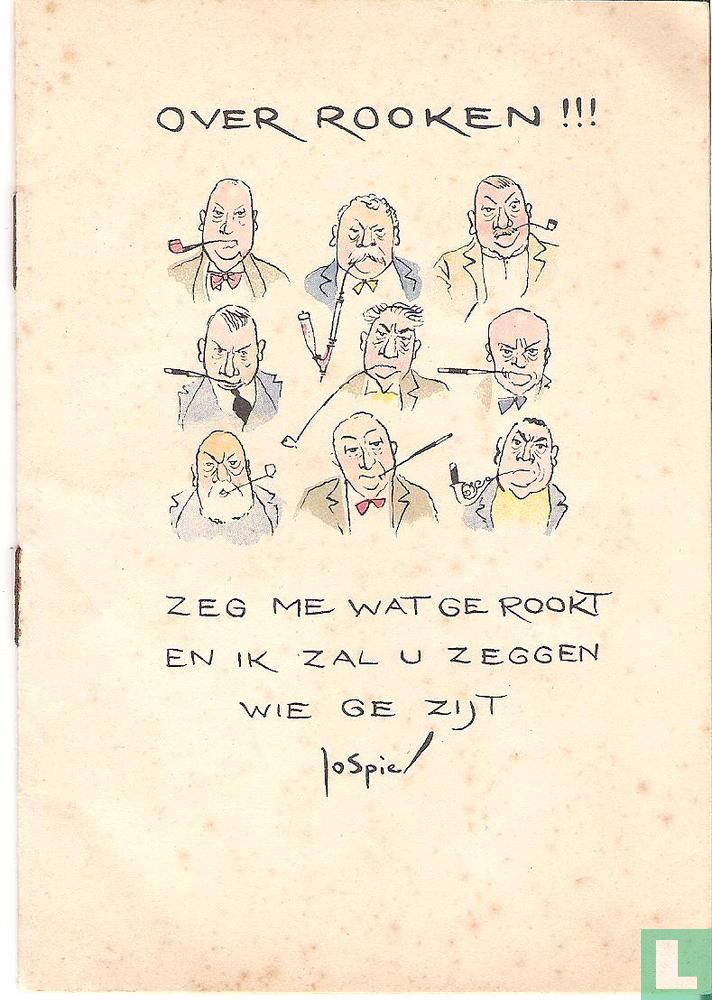 OVER ROOKEN!!!
ZEG ME WAT GE ROOKT
EN IK ZAL U ZEGGEN
WIE GE ZIJT
Jo Spier
L